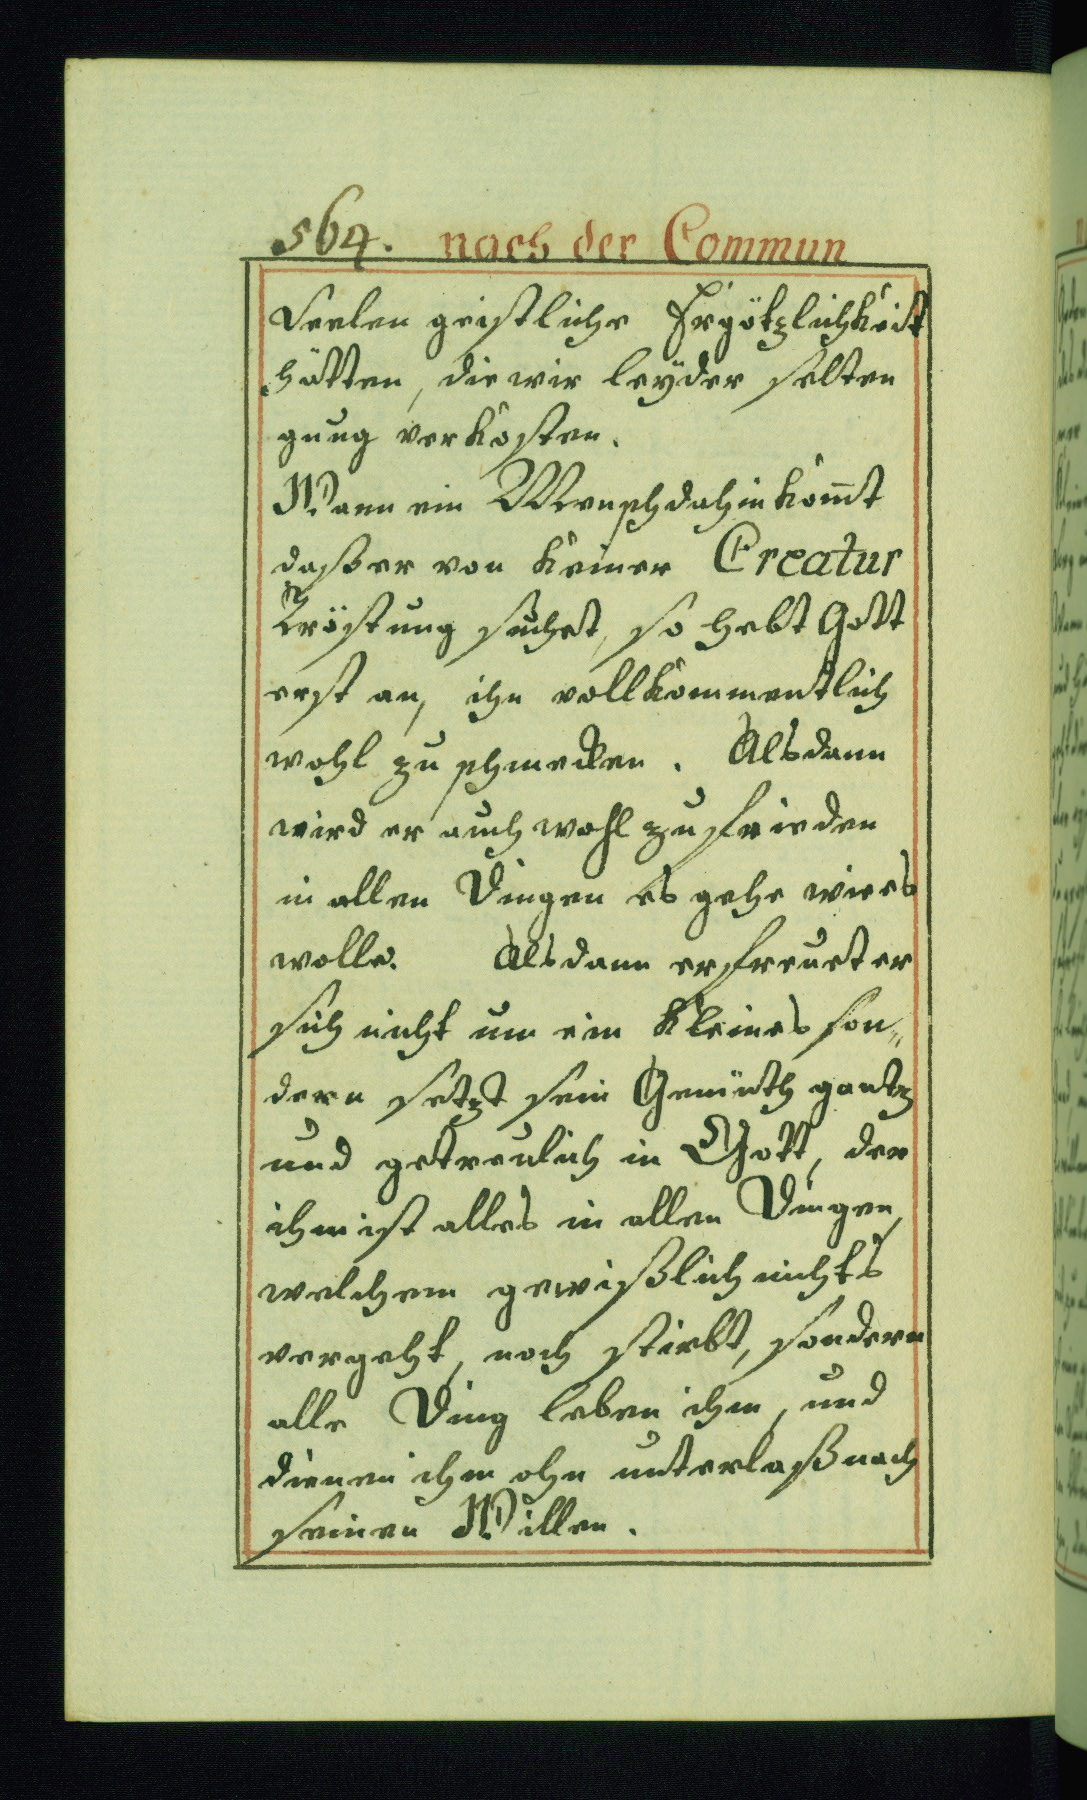 564. nach der Commun
Seelen geistliche Ergötzlichkeit
hätten, die wir leyder selten
gnug verkosten.
Wann ein Mensch dahin kom̄t
daß er von keiner Creatur
Tröstung suchet, so hebt Gott
erst an, ihn vollkommentlich
wohl zu schmecken. Alsdann
wird er auch wohl zufrieden
in allen Dingen es gehe wie es
wolle. Alsdann erfreuet er
sich nicht um ein kleines son„
dern setzt sein Gemüth gantz
und getreulich in Gott, der
ihm ist alles in allen Dingen,
welchem gewißlich nichts
vergeht, noch stirbt, sondern
alle Ding leben ihm, und
dienen ihm ohn unterlaß nach
seinen Willen.